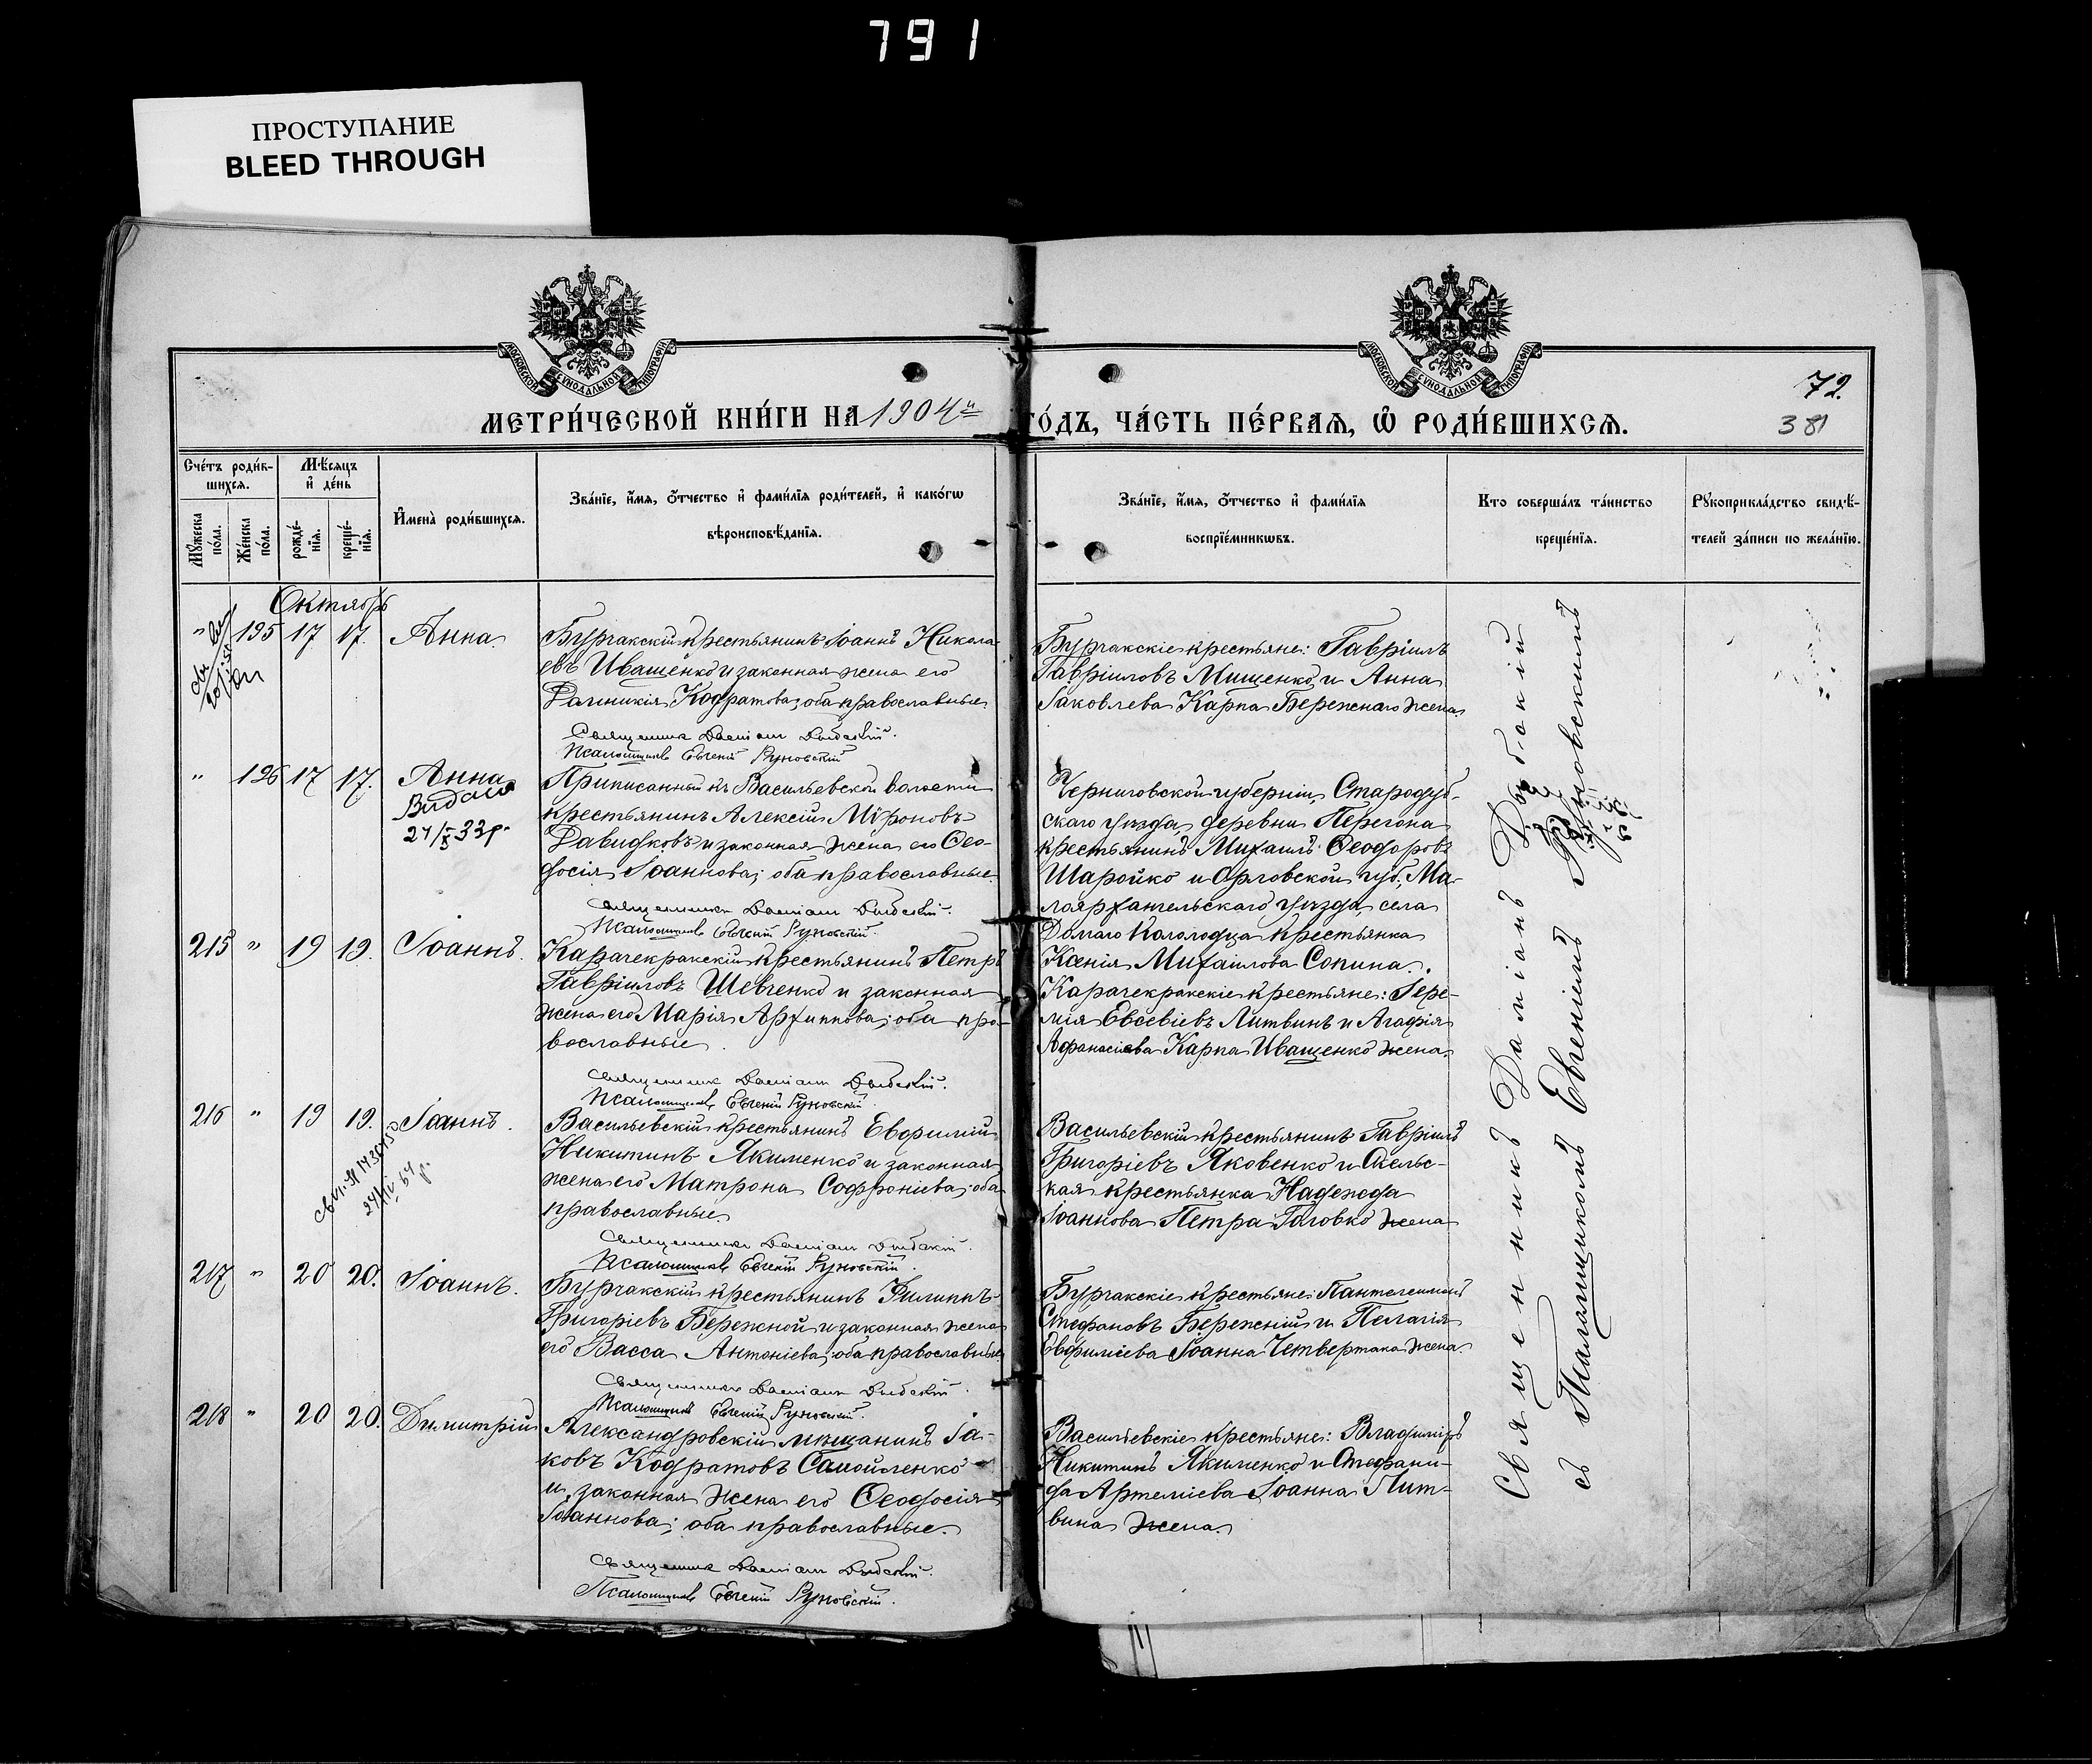 791
ПРОСТУПАНИЕ
BLEED THROUGH
МОСКОВСКОЙ СѴНОДАЛЬНОЙ ТИПОГРАФІИ
МОСКОВСКОЙ СѴНОДАЛЬНОЙ ТИПОГРАФІИ
72.
381
МЕТРИ́ЧЕСКОЙ КНИ́ГИ НА 1904й ГО́ДЪ, ЧА́СТЬ ПЕ́РВАЯ, Ѽ РОДИ́ВШИХСЯ.
Сче́тъ роди́в-
шихся.
Мѣ́сяцъ
и де́нь
Мꙋ́жеска по́ла.
Же́нска по́ла.
рожде́-нія.
креще́-нія.
Имена̀ роди́вшихся.
Зва́ніе, и́мя, ѻ́тчество и фами́лія роди́телей, и како́гѡ
вѣроисповѣ́данія.
Зва́ніе, и́мя, ѻ́тчество и фами́лія
воспріе́мникѡвъ.
Кто соверша́лъ та́инство
креще́нія.
Рꙋкоприкла́дство свидѣ́-
телей за́писи по жела́нію.
Октябрь
" 195 17 17. Анна
Бурчакскій крестьянинъ Іоаннъ Никола-
евъ Иващенко и законная жена его
Кодратова; оба православные.
Священникъ Даміанъ
Псаломщикъ Евгеній Руновскій
Бурчакскіе крестьяне: Гавріилъ
Гавріиловъ Мищенко и Анна
Іаковлева Карпа Бережнаго жена.
" 196 17 17. Анна
24/X 33р.
Приписанный къ Васильевской волости
крестьянинъ Алексій Мѵроновъ
Давидковъ и законная жена его Ѳео-
досія Іоаннова; оба православные.
Священникъ Даміанъ
Псаломщикъ Евгеній Руновскій.
Черниговской губерніи, Стародуб-
скаго уѣзда, деревни Перегона
крестьянинъ Михаилъ Ѳеодоровъ
Шаройко и Орловской губ., Ма-
лоархангельскаго уѣзда, села
Колодца крестьянка
Ксенія Михаилова Сопина.
215 " 19 19. Іоаннъ.
Карачекракскій крестьянинъ Петръ
Гавріиловъ Шевченко и законная
жена его Марія Архиппова; оба пра-
вославные.
Священникъ Даміанъ
Псаломщикъ Евгеній Руновскій
Карачекракскіе крестьяне: Іере-
мія Евсевіевъ Литвинъ и Агафія
Аѳанасіева Карпа Иващенко жена.
216 " 19 19. Іоаннъ.
Васильевскій крестьянинъ Евѳимій
Никитинъ Якименко и законная
жена его Матрона Софроніева; оба
православные.
Священникъ Даміанъ
Псаломщикъ Евгеній Руновскій.
Васильевскій крестьянинъ Гавріилъ
Григоріевъ Яковенко и Скельс-
кая крестьянка Надежда
Іоаннова Петра Головко жена
217 " 20 20. Іоаннъ.
Бурчакскій крестьянинъ Филиппъ
Григоріевъ Бережной и законная жена
его Васса Антоніева; оба православные.
Священникъ Даміанъ
Псаломщикъ Евгеній Руновскій.
Бурчакскіе крестьяне: Пантелеимонъ
Стефановъ Бережный и Пелагія
Евѳиміева Іоанна Четвертака жена.
218 " 20 20. Димитрій
Александровскій мѣщанинъ Іа-
ковъ Кодратовъ Самойленко
и законная жена его Ѳеодосія
Іоаннова; оба православные.
Священникъ Даміанъ
Псаломщикъ Евгеній Руновскій.
Васильевскіе крестьяне: Владиміръ
Никитинъ Якименко и Стефани-
да Артеміева Іоанна Лит-
вина жена.
Священникъ Даміанъ
съ Псаломщикомъ Евгеніемъ Руновскимъ